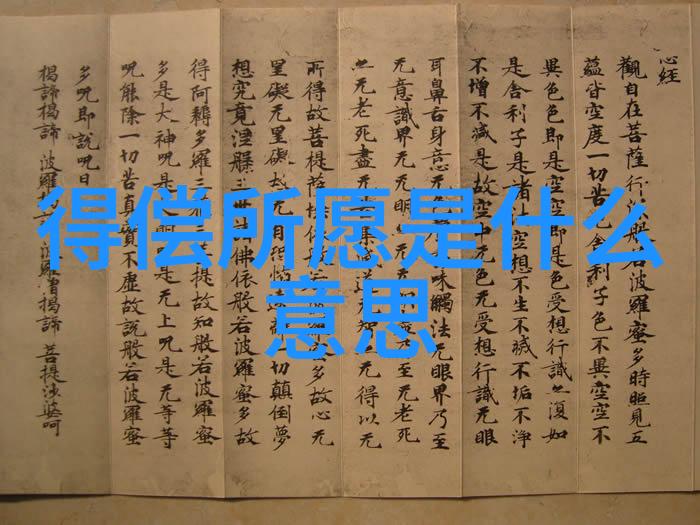 得偿所愿是什么
意思
心経
觀自在菩薩行深般若波羅蜜多時照見五
蘊皆空度一切苦厄舍利子色不異空空不
異色色即是空空即是色受想行識亦復如
是舍利子是諸法空想不生不滅不垢不淨
不增不減是故空中无色无受想行識无眼
耳鼻舌身意无色味觸法无眼界乃至
无意識界无无明乃至无老死
亦无老死盡无集滅道无智亦无得以无
所得故菩提薩依般若多故心无
罣礙无罣礙故无有恐怖遠一切顛倒夢
想究竟涅槃三世諸佛依般若波羅蜜多故
得阿耨多羅三三菩提故知般若波羅蜜
多是大神呪是大明是无上呪是无等等
呪能除一切苦真實不虛故說般若波羅蜜
多呪即說呪曰
揭諦揭諦 波羅揭 波羅僧揭諦 菩提沙婆呵